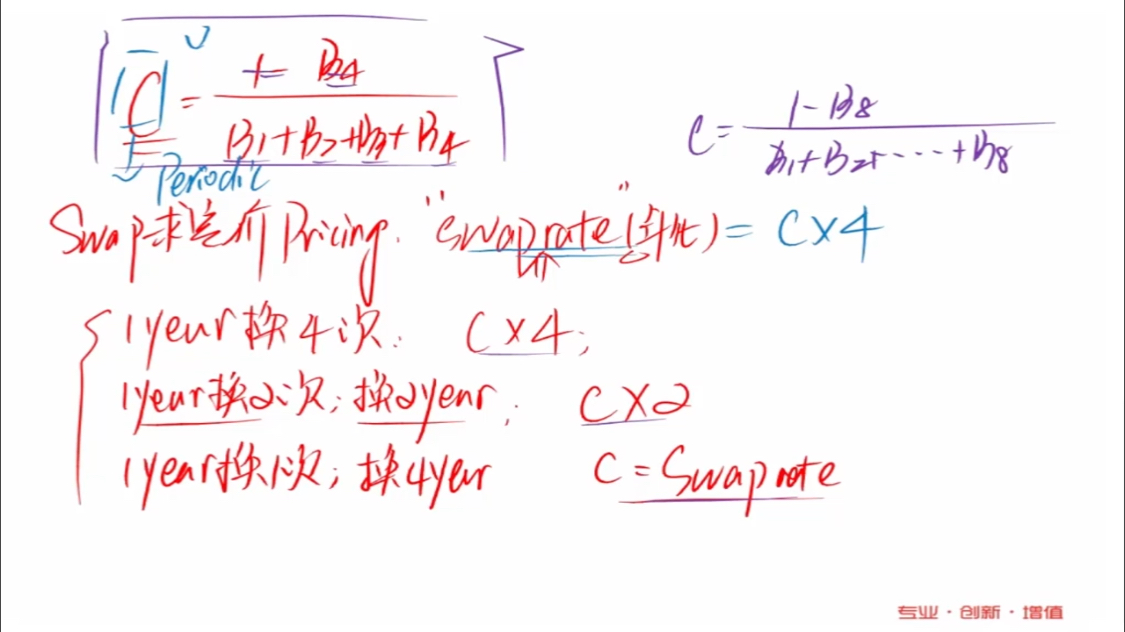 C = (1 - B4) / (B1+B2+B3+B4)
Periodic
C = (1-B8) / (B1+B2+····+B8)
Swap求定价 Pricing. "swap rate"(年化) = C×4
1year换4次. C×4;
1year换2次; 换2year; C×2
1year换1次; 换4year C = Swap rate
专业·创新·增值